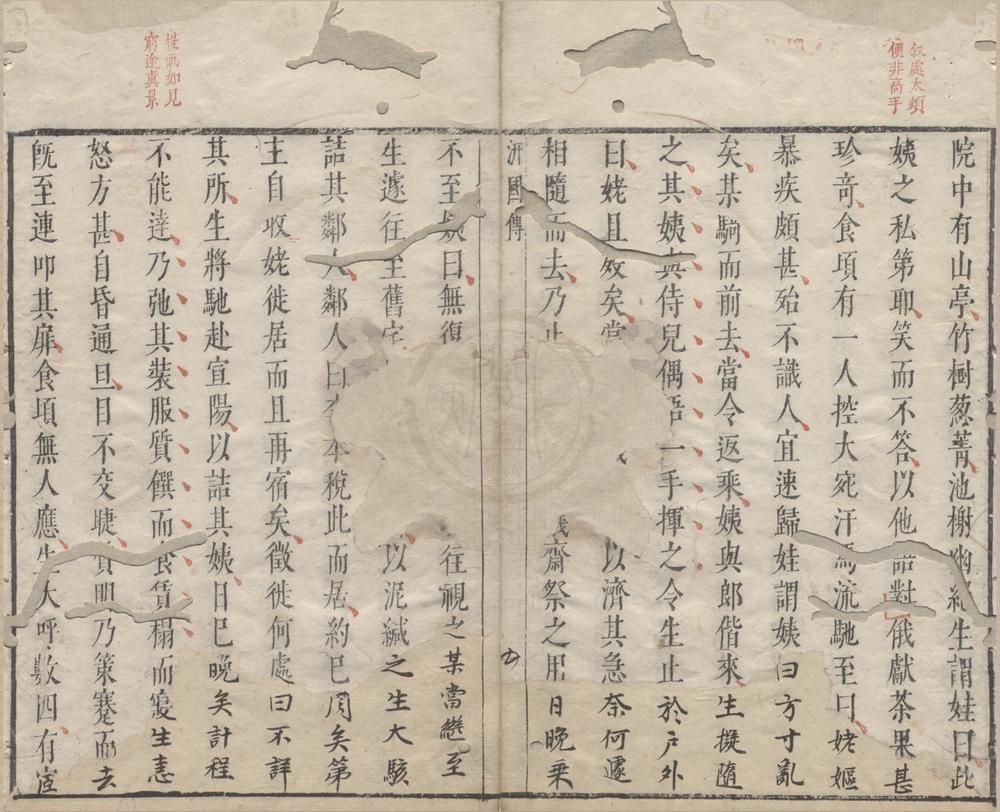 敘處太煩
便非高手
院中有山亭竹樹葱蒨池榭幽絕生謂娃曰此
姨之私第耶笑而不答以他語對俄獻茶果甚
珍奇食頃有一人控大宛汗馬流馳至曰姥嫗
暴疾頗甚殆不識人宜速歸娃謂姨曰方寸亂
矣某騎而前去當令返乘姨與郎偕來生擬隨
之其姨與侍兒偶語一手揮之令生止於户外
曰姥且歿矣當以濟其急奈何遽
相隨而去乃止齋祭之用日晚乘
汧國傳
五
摧啣如見
窮途真景
不至姨曰無復往視之某當繼至
生遽往至舊宅以泥緘之生大駭
詰其鄰人鄰人曰本稅此而居約已周矣第
主自收姥徙居而且再宿矣徵徙何處曰不詳
其所生將馳赴宣陽以詰其姨日已晚矣計程
不能達乃弛其裝服質饌而食賃榻而寢生恚
怒方甚自昏通旦目不交睫質明乃策蹇而去
旣至連叩其扉食頃無人應生大呼數四有宦